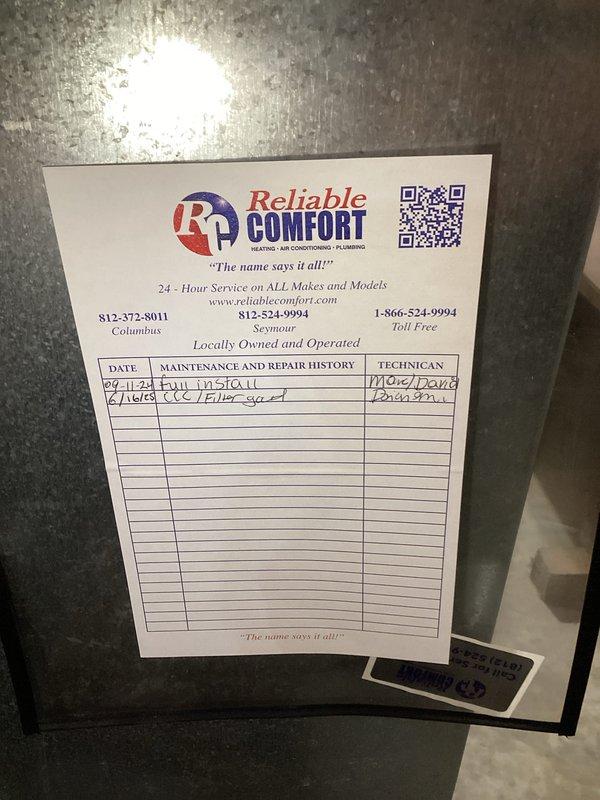 RC Reliable
COMFORT
HEATING · AIR CONDITIONING · PLUMBING
"The name says it all!"
24 - Hour Service on ALL Makes and Models
www.reliablecomfort.com
812-372-8011 812-524-9994 1-866-524-9994
Columbus Seymour Toll Free
Locally Owned and Operated
DATE MAINTENANCE AND REPAIR HISTORY TECHNICAN
09-11-24 full install Marc/David
6/16/25 CCC/Filter good
"The name says it all!"
Call for Ser
(812) 524-9
COMFORT